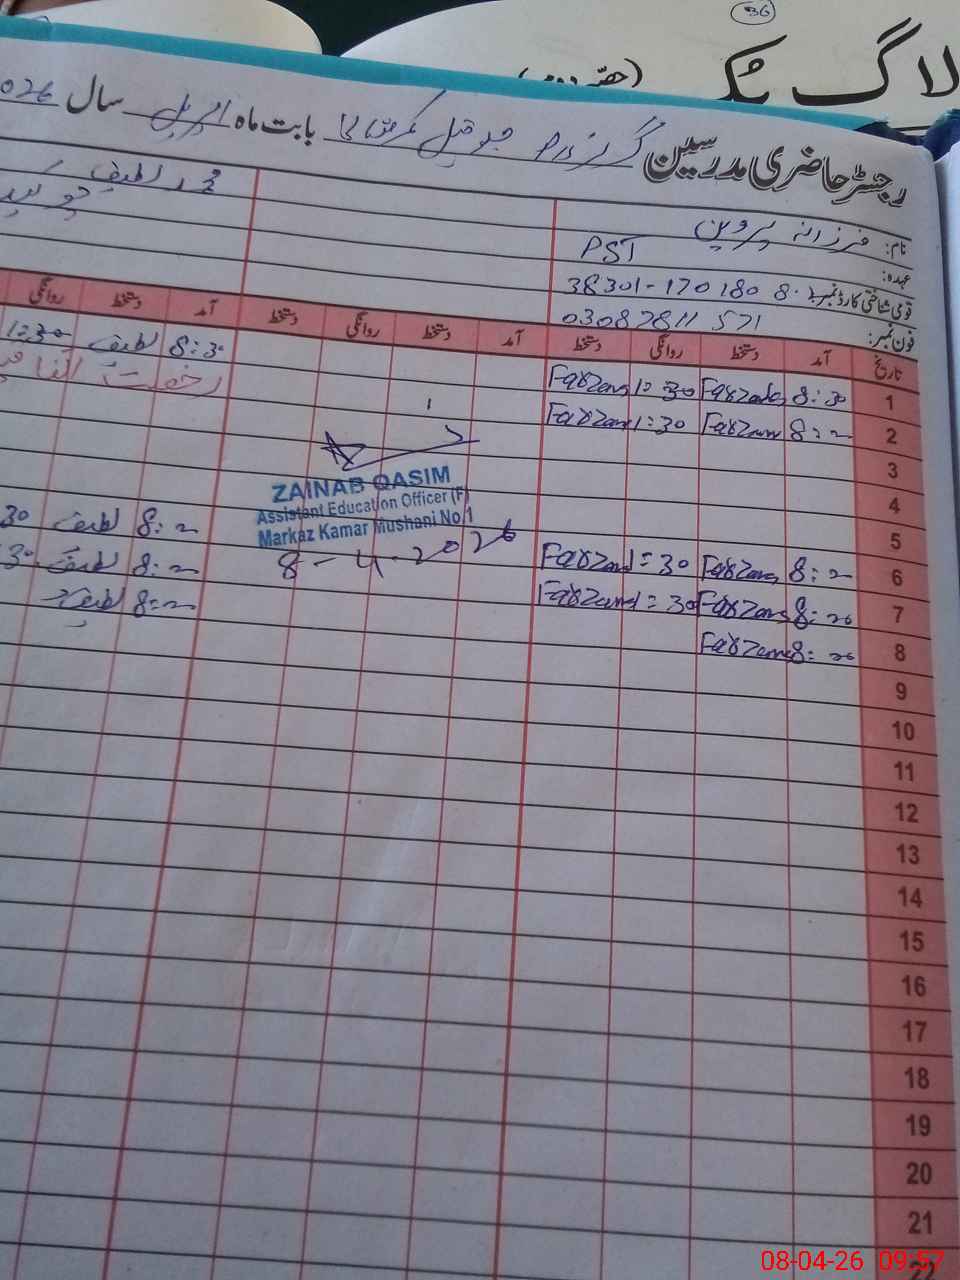 36
لاگ بُک (حصّہ دوم)
رجسٹر حاضری مدرسین گرلز P/S بابت ماہ اپریل سال 026
نام: فرزانہ پروین محمد لطیف
عہدہ: PST
قومی شناختی کارڈ نمبر: 38301-170180 8.
فون نمبر: 03087811 571
تاریخ آمد دستخط روانگی دستخط آمد دستخط روانگی دستخط آمد دستخط روانگی
1 8:30 Farzana 1:30 Farzana 8:30 لطیف 1:30
2 8:00 Farzana 1:30 Farzana رخصت اتفاقیہ
3
4
5
6 8:00 Farzana 1:30 Farzana 8:00 لطیف 30
7 8:00 Farzana 1:30 Farzana 8:00 لطیف 30
8 8:00 Farzana 8:00 لطیف
ZAINAB QASIM
Assistant Education Officer (F)
Markaz Kamar Mushani No.1
8-4-2026
9
10
11
12
13
14
15
16
17
18
19
20
21
22
08-04-26 09:57